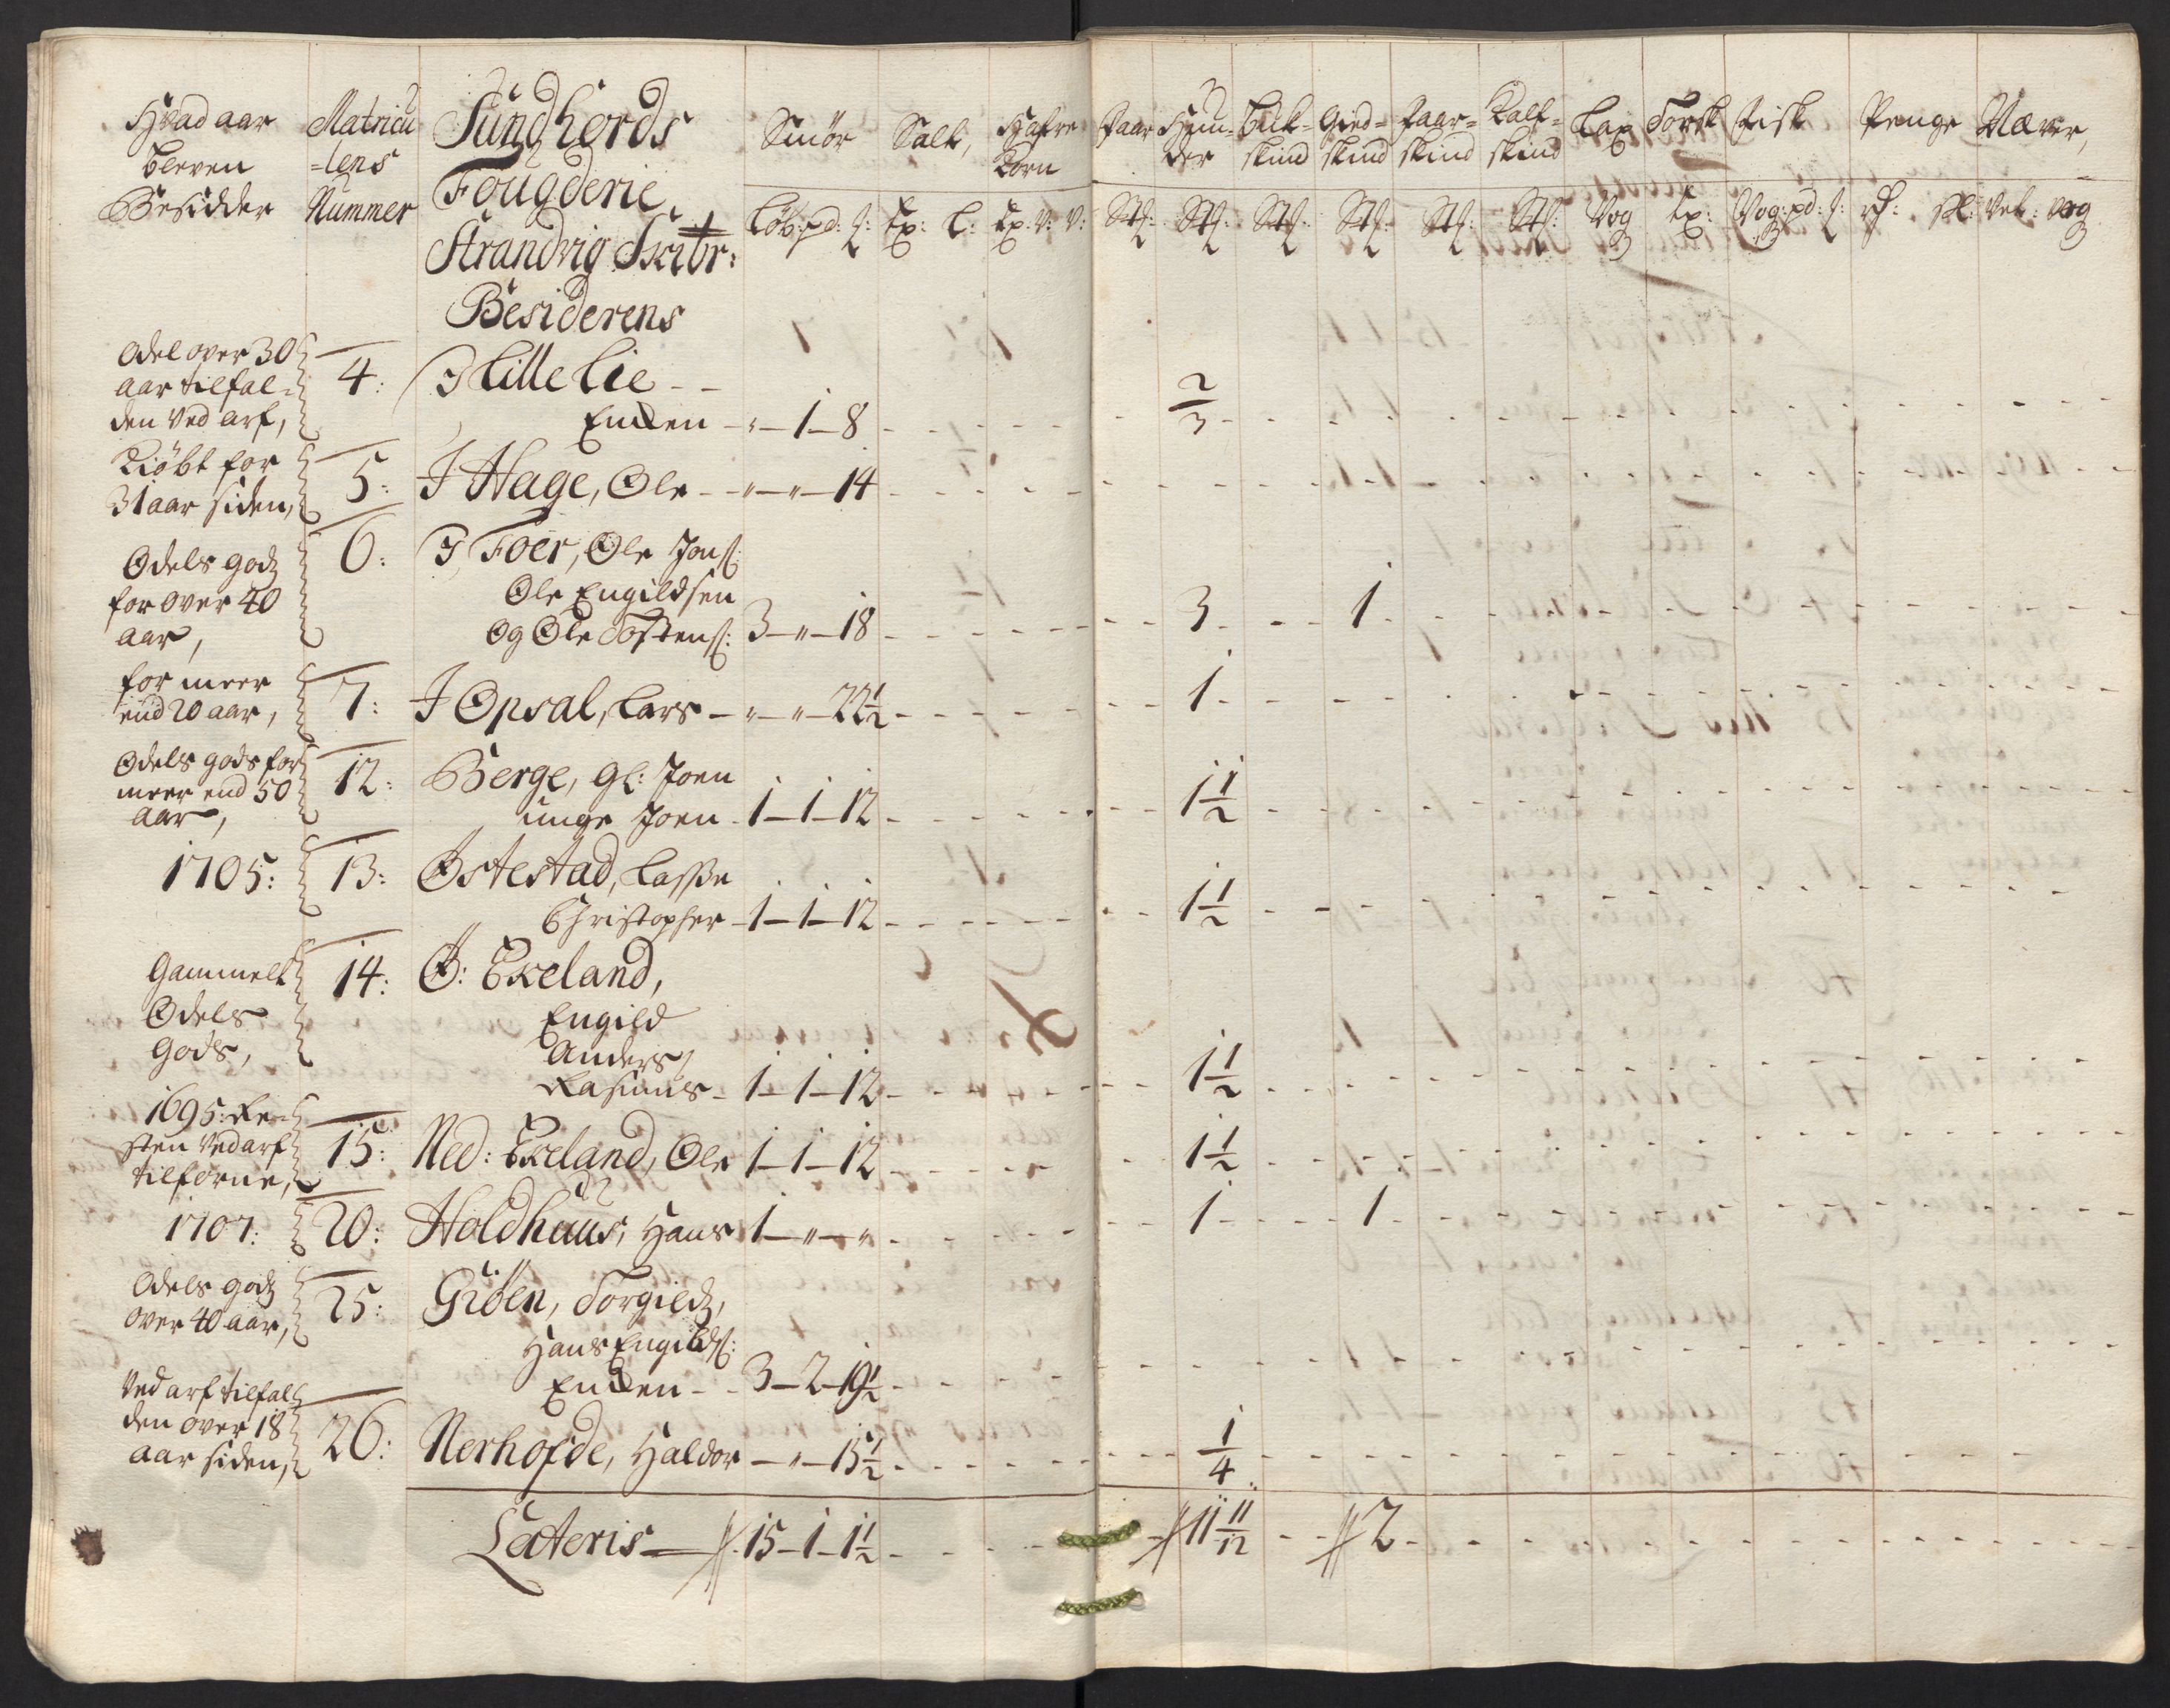 Hvad aar
bleven
Besidder
Matricu
=lens
Nummer
Sundhords
Fougderie
Strandvig Skibr:
Besiderens
Smör
Salt,
Hafre
Korn
Faar
Huu=
der
Buk=
skind
Gied=
skind
Faar=
skind
Kalf=
skind
Lax
Torsk
Fisk
Penge
Wæver,
Löb: pd: ℔: Tp: L: Tp: V: V: Stk: Stk: Stk: Stk: Stk: Stk: Vog Tp: Vog: pd: ℔: rd: sk: Vet: Vog
Odel over 30
aar tilfal=
den Ved arf,
4: I Lille Lie - -
Enken - " - 1 - 8 2/3
Kiöbt for
31 aar siden,
5: I Hage, Ole - " - " - 14
Odels godz
for over 40
aar,
6: I Foer, Ole Jons:
Ole Engildsen
og Ole Tostens: 3 - " - 18 3 1
for meer
end 20 aar,
7: I Opsal, Lars - " - " - 22½ 1
Odels gods for
meer end 50
aar,
12: Berge, gl: Joen
unge Joen - 1 - 1 - 12 1½
1705:
13: Östestad, Lasse
Christopher - 1 - 1 - 12 1½
Gammelt
Odels
gods,
14: Ö: Ekeland,
Engild
Anders,
Rasmus - 1 - 1 - 12 1½
1695: Re=
sten Ved arf
tilforne,
15: Ned: Ekeland, Ole 1 - 1 - 12 1½
1707:
20: Holdhuus, Hans 1 - " - " 1 1
Odels godz
over 40 aar,
25: Giöen, Torgildz,
Hans Engilds:
Enken - - 3 - 2 - 19½
Ved arf tilfal
den over 18
aar siden,
26: Nerhofde, Haldor - " - 15½ 1/4
Lateris - 15 - 1 - 1½ 11 11/12 2